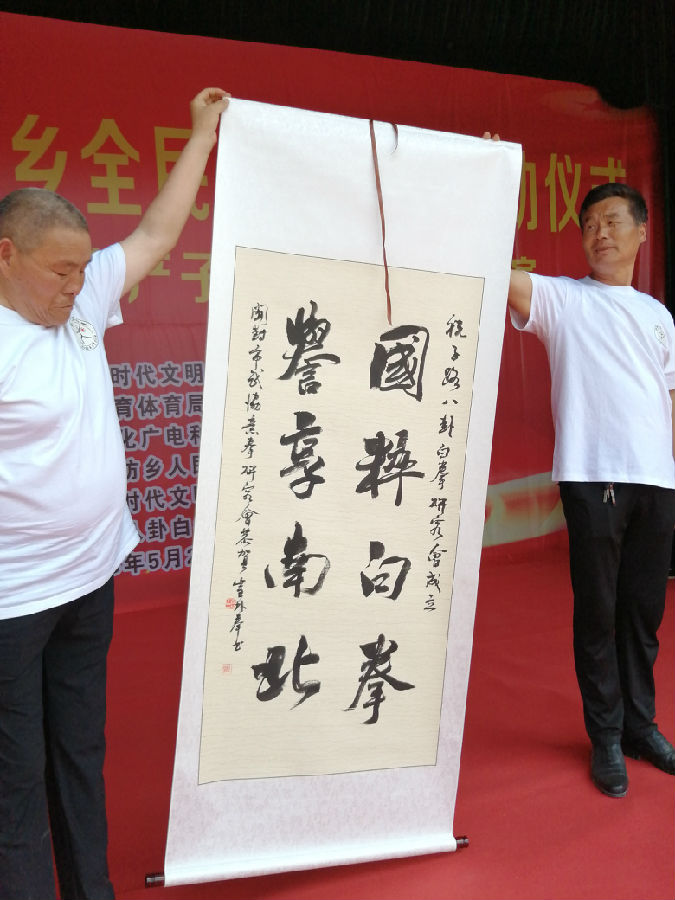 乡全民
动仪式
时代文明
育体育局
化广电和
乡人民
时代文
八卦白
年5月2
祝子路八卦白拳研究會成立
國粹白拳
譽享南北
開封市武協意拳研究會恭賀